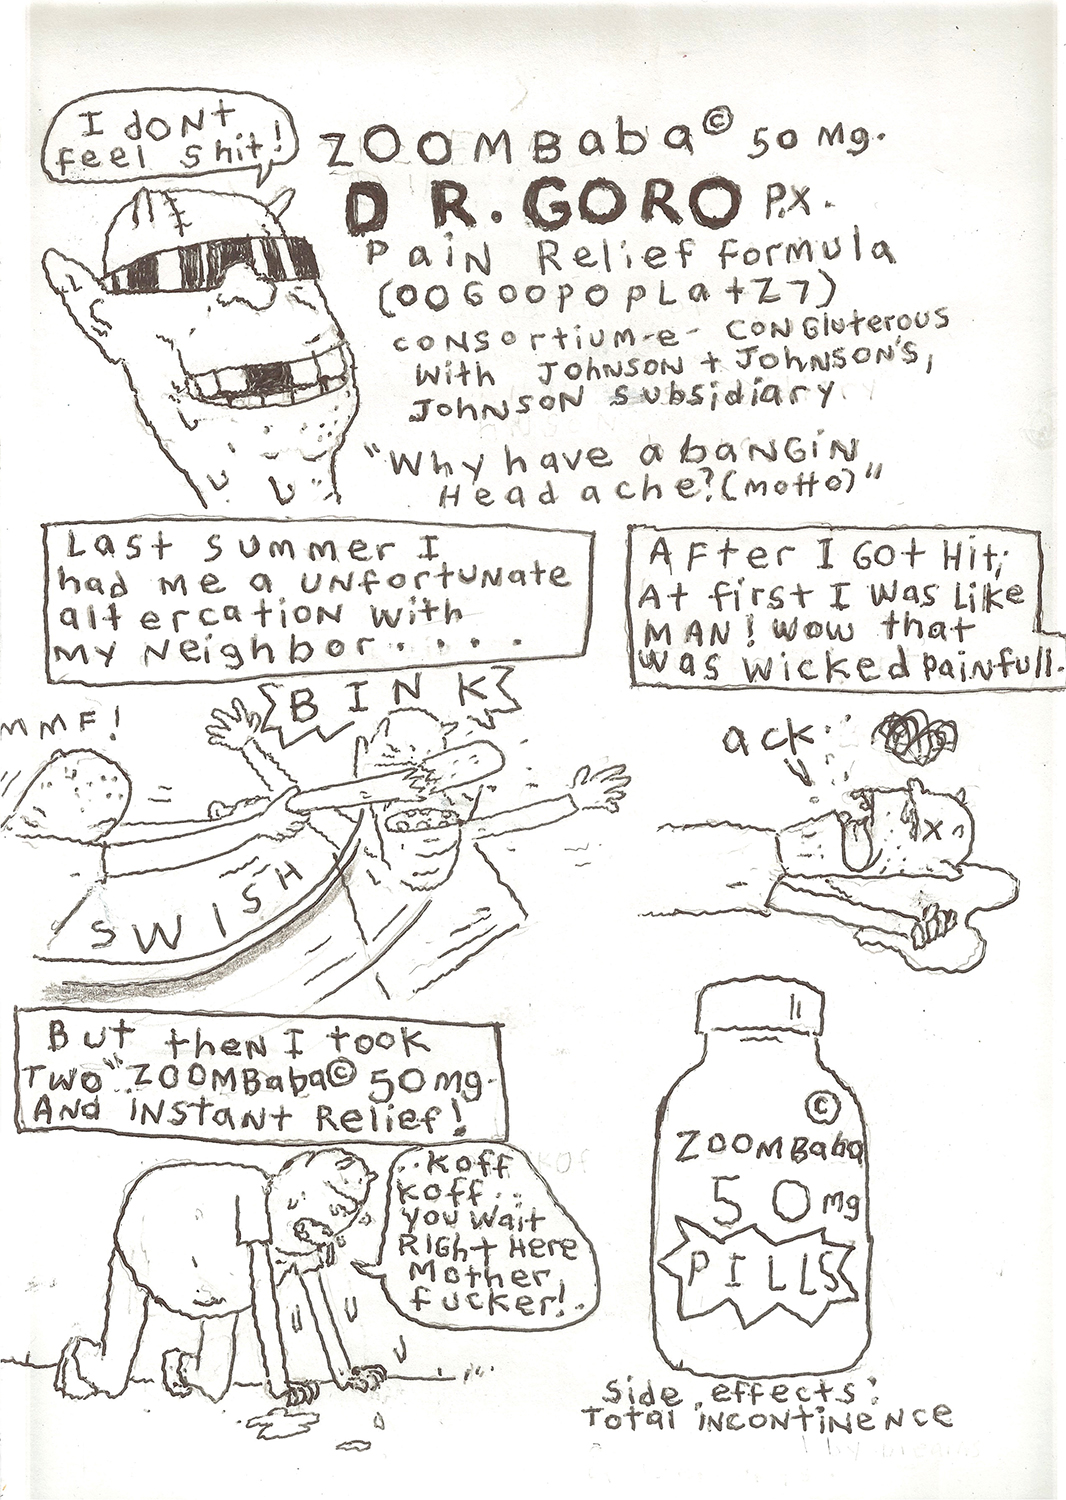 I dONt
feel shit!
ZOOMBaba© 50 Mg.
DR. GORO P.X.
PaiN Relief formula
(OOGOOPOPLatZ7)
CONSortium-e- CONGluterous
With JOHNSON + JOHNSON'S,
JOHNSON Subsidiary
"Why have a baNGiN
Head ache? (motto)"
Last summer I
had me a UNfortuNate
altercation with
my Neighbor.....
After I Got Hit;
At first I was Like
MAN! WOW that
was wicked painfull.
MMF!
BINK
SWISH
ack
But then I took
Two" ZOOMBaba© 50mg.
And INStant Relief!
..Koff
Koff..
you wait
RIGHt HeRe
Mother
fucker!.
©
ZOOMBaba
50mg
PILLS
Side effects:
Total iNcontiNeNce